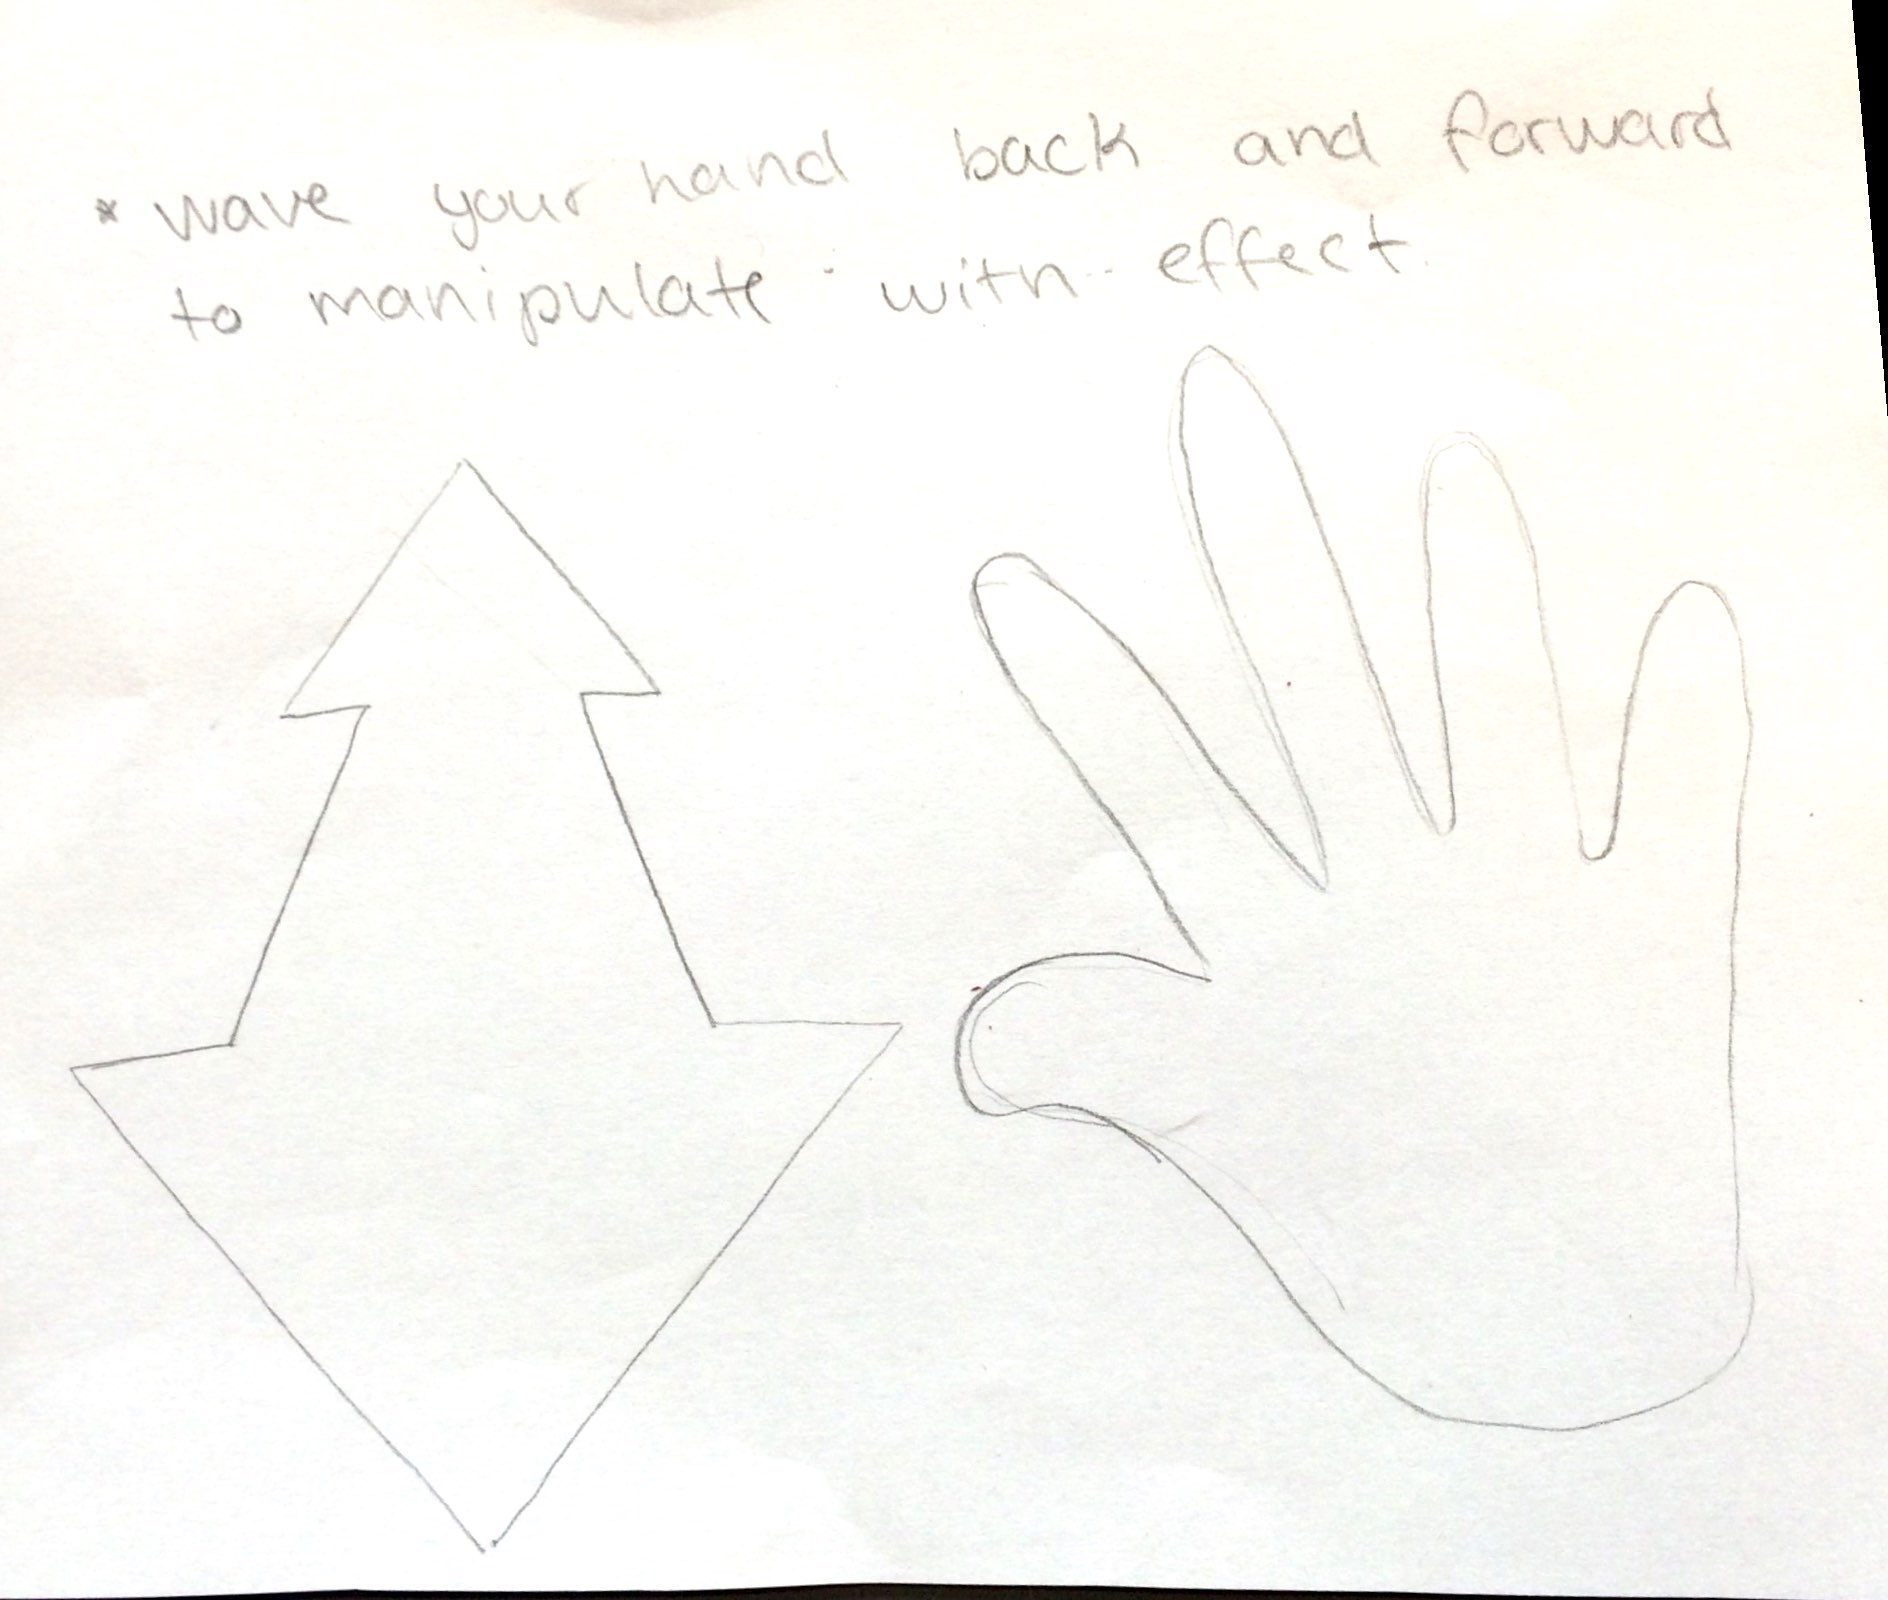 * wave your hand back and forward
to manipulate with effect.